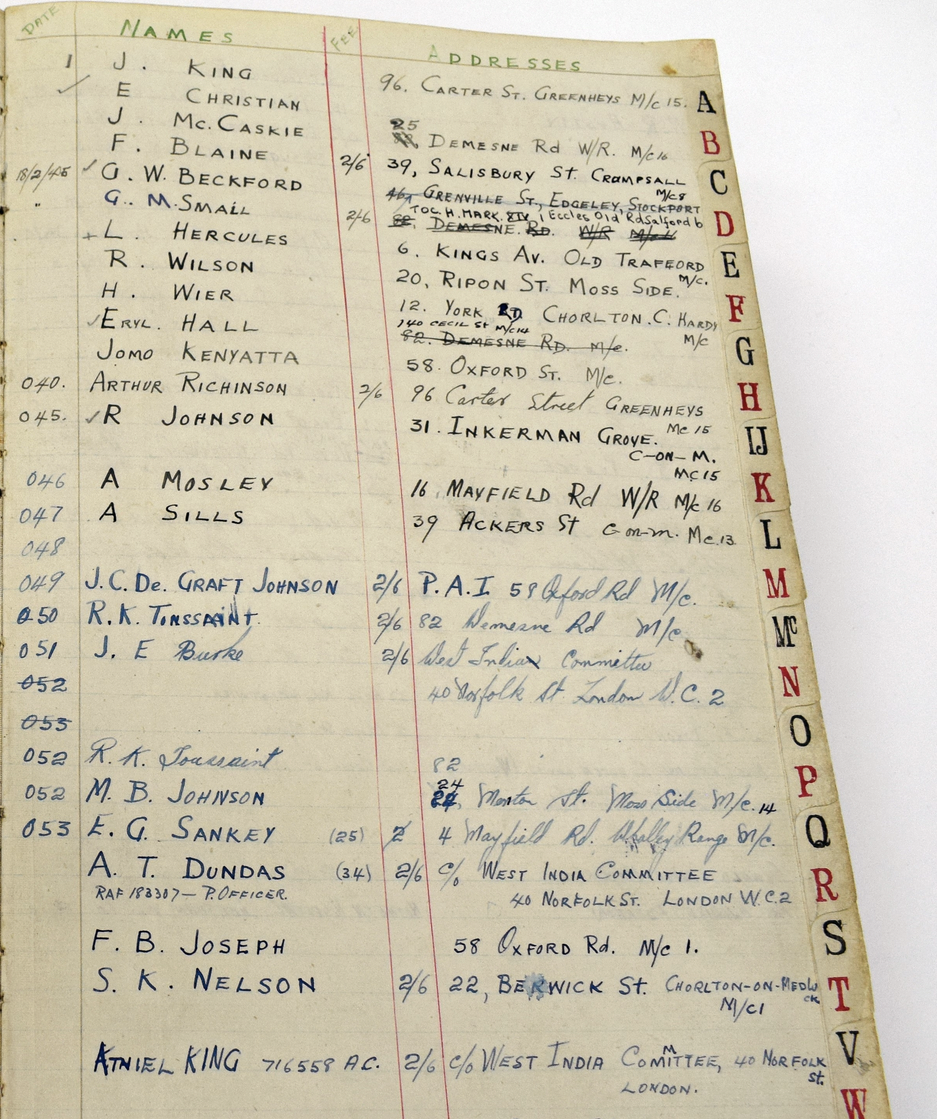 DATE NAMES FEE ADDRESSES
1 J. KING
E CHRISTIAN 96, CARTER ST. GREENHEYS M/C 15.
J. Mc.CASKIE 25
F. BLAINE DEMESNE Rd W/R. M/C 16
18/2/45 G. W. BECKFORD 2/6 39, SALISBURY ST. CRUMPSALL M/C 8
" G. M. SMALL GRENVILLE ST., EDGELEY, STOCKPORT
TOC. H. MARK. 1 Eccles Old Rd Salford 6
L. HERCULES 2/6 82, DEMESNE. RD. W/R
R. WILSON 6. KINGS AV. OLD TRAFFORD M/C.
H. WIER 20, RIPON ST. MOSS SIDE.
ERYL. HALL 12. YORK RD CHORLTON.C. HARDY M/C
140 CECIL ST M/C 14
82. DEMESNE RD. M/C.
JOMO KENYATTA 58. OXFORD ST. M/C.
040. ARTHUR RICHINSON 2/6 96 Carter Street GREENHEYS MC 15
045. R JOHNSON 31. INKERMAN GROVE.
C-ON-M.
MC 15
046 A MOSLEY 16, MAYFIELD Rd W/R M/C 16
047 A SILLS 39 ACKERS ST C-on-m. Mc.13
048
049 J.C. De. GRAFT JOHNSON 2/6 P.A.I 58 Oxford Rd M/c.
050 R.K. TOUSSAINT. 2/6 82 Demesne Rd M/c.
051 J. E Burke 2/6 West Indian Committee
052 40 Norfolk St. London W.C. 2
053
052 R. K. Toussaint 82
052 M. B. JOHNSON 24 24, Monton St. Moss Side M/c. 14
053 E. G. SANKEY (25) 2 4 Mayfield Rd. Whalley Range M/c.
A. T. DUNDAS (34) 2/6 c/o WEST INDIA COMMITTEE
RAF 183307 – P. OFFICER. 40 NORFOLK ST. LONDON W.C.2
F. B. JOSEPH 58 OXFORD Rd. M/C 1.
S. K. NELSON 2/6 22, BERWICK ST. CHORLTON-ON-MEDLOCK
M/C1
ATNIEL KING 716558 A.C. 2/6 c/o WEST INDIA COMMITTEE, 40 NORFOLK St.
LONDON.
A
B
C
D
E
F
G
H
IJ
K
L
M
Mc
N
O
P
Q
R
S
T
V
W